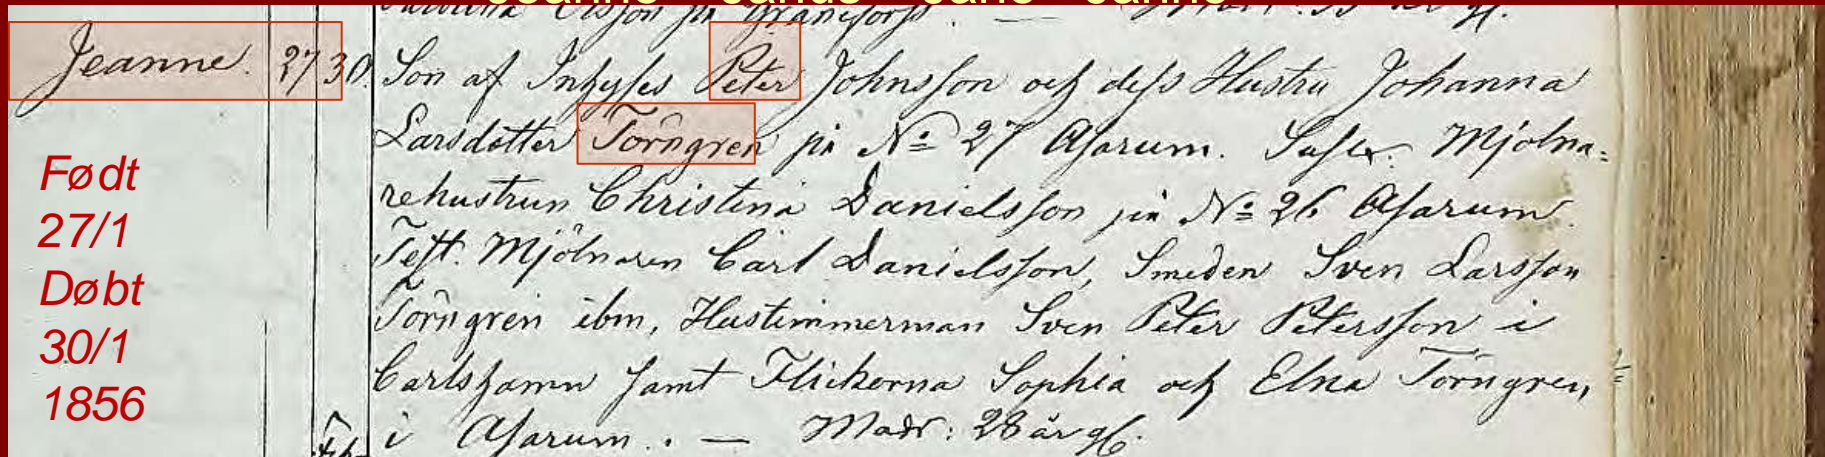 Jeanne. 27 30. Son af Inhyses Peter Johnsson och dess Hustru Johanna
Larsdotter Törngren på No 27 Asarum. Susc. Mjölna-
rehustrun Christina Danielsson på No 26 Asarum.
Test. Mjölnaren Carl Danielsson, Smeden Sven Larsson
Törngren ibm, Hustimmerman Sven Peter Petersson i
Carlshamn samt Flickorna Sophia och Elna Törngren,
i Asarum. — Modr: 28 år gl.
Født
27/1
Døbt
30/1
1856